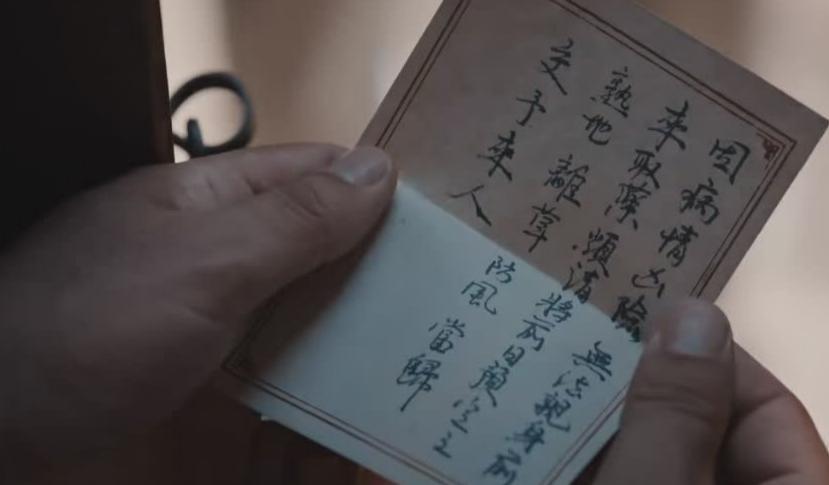 因病情凶險無法親身前
來取藥煩請將前日預定之
熟地 離草 防風 當歸
交予來人